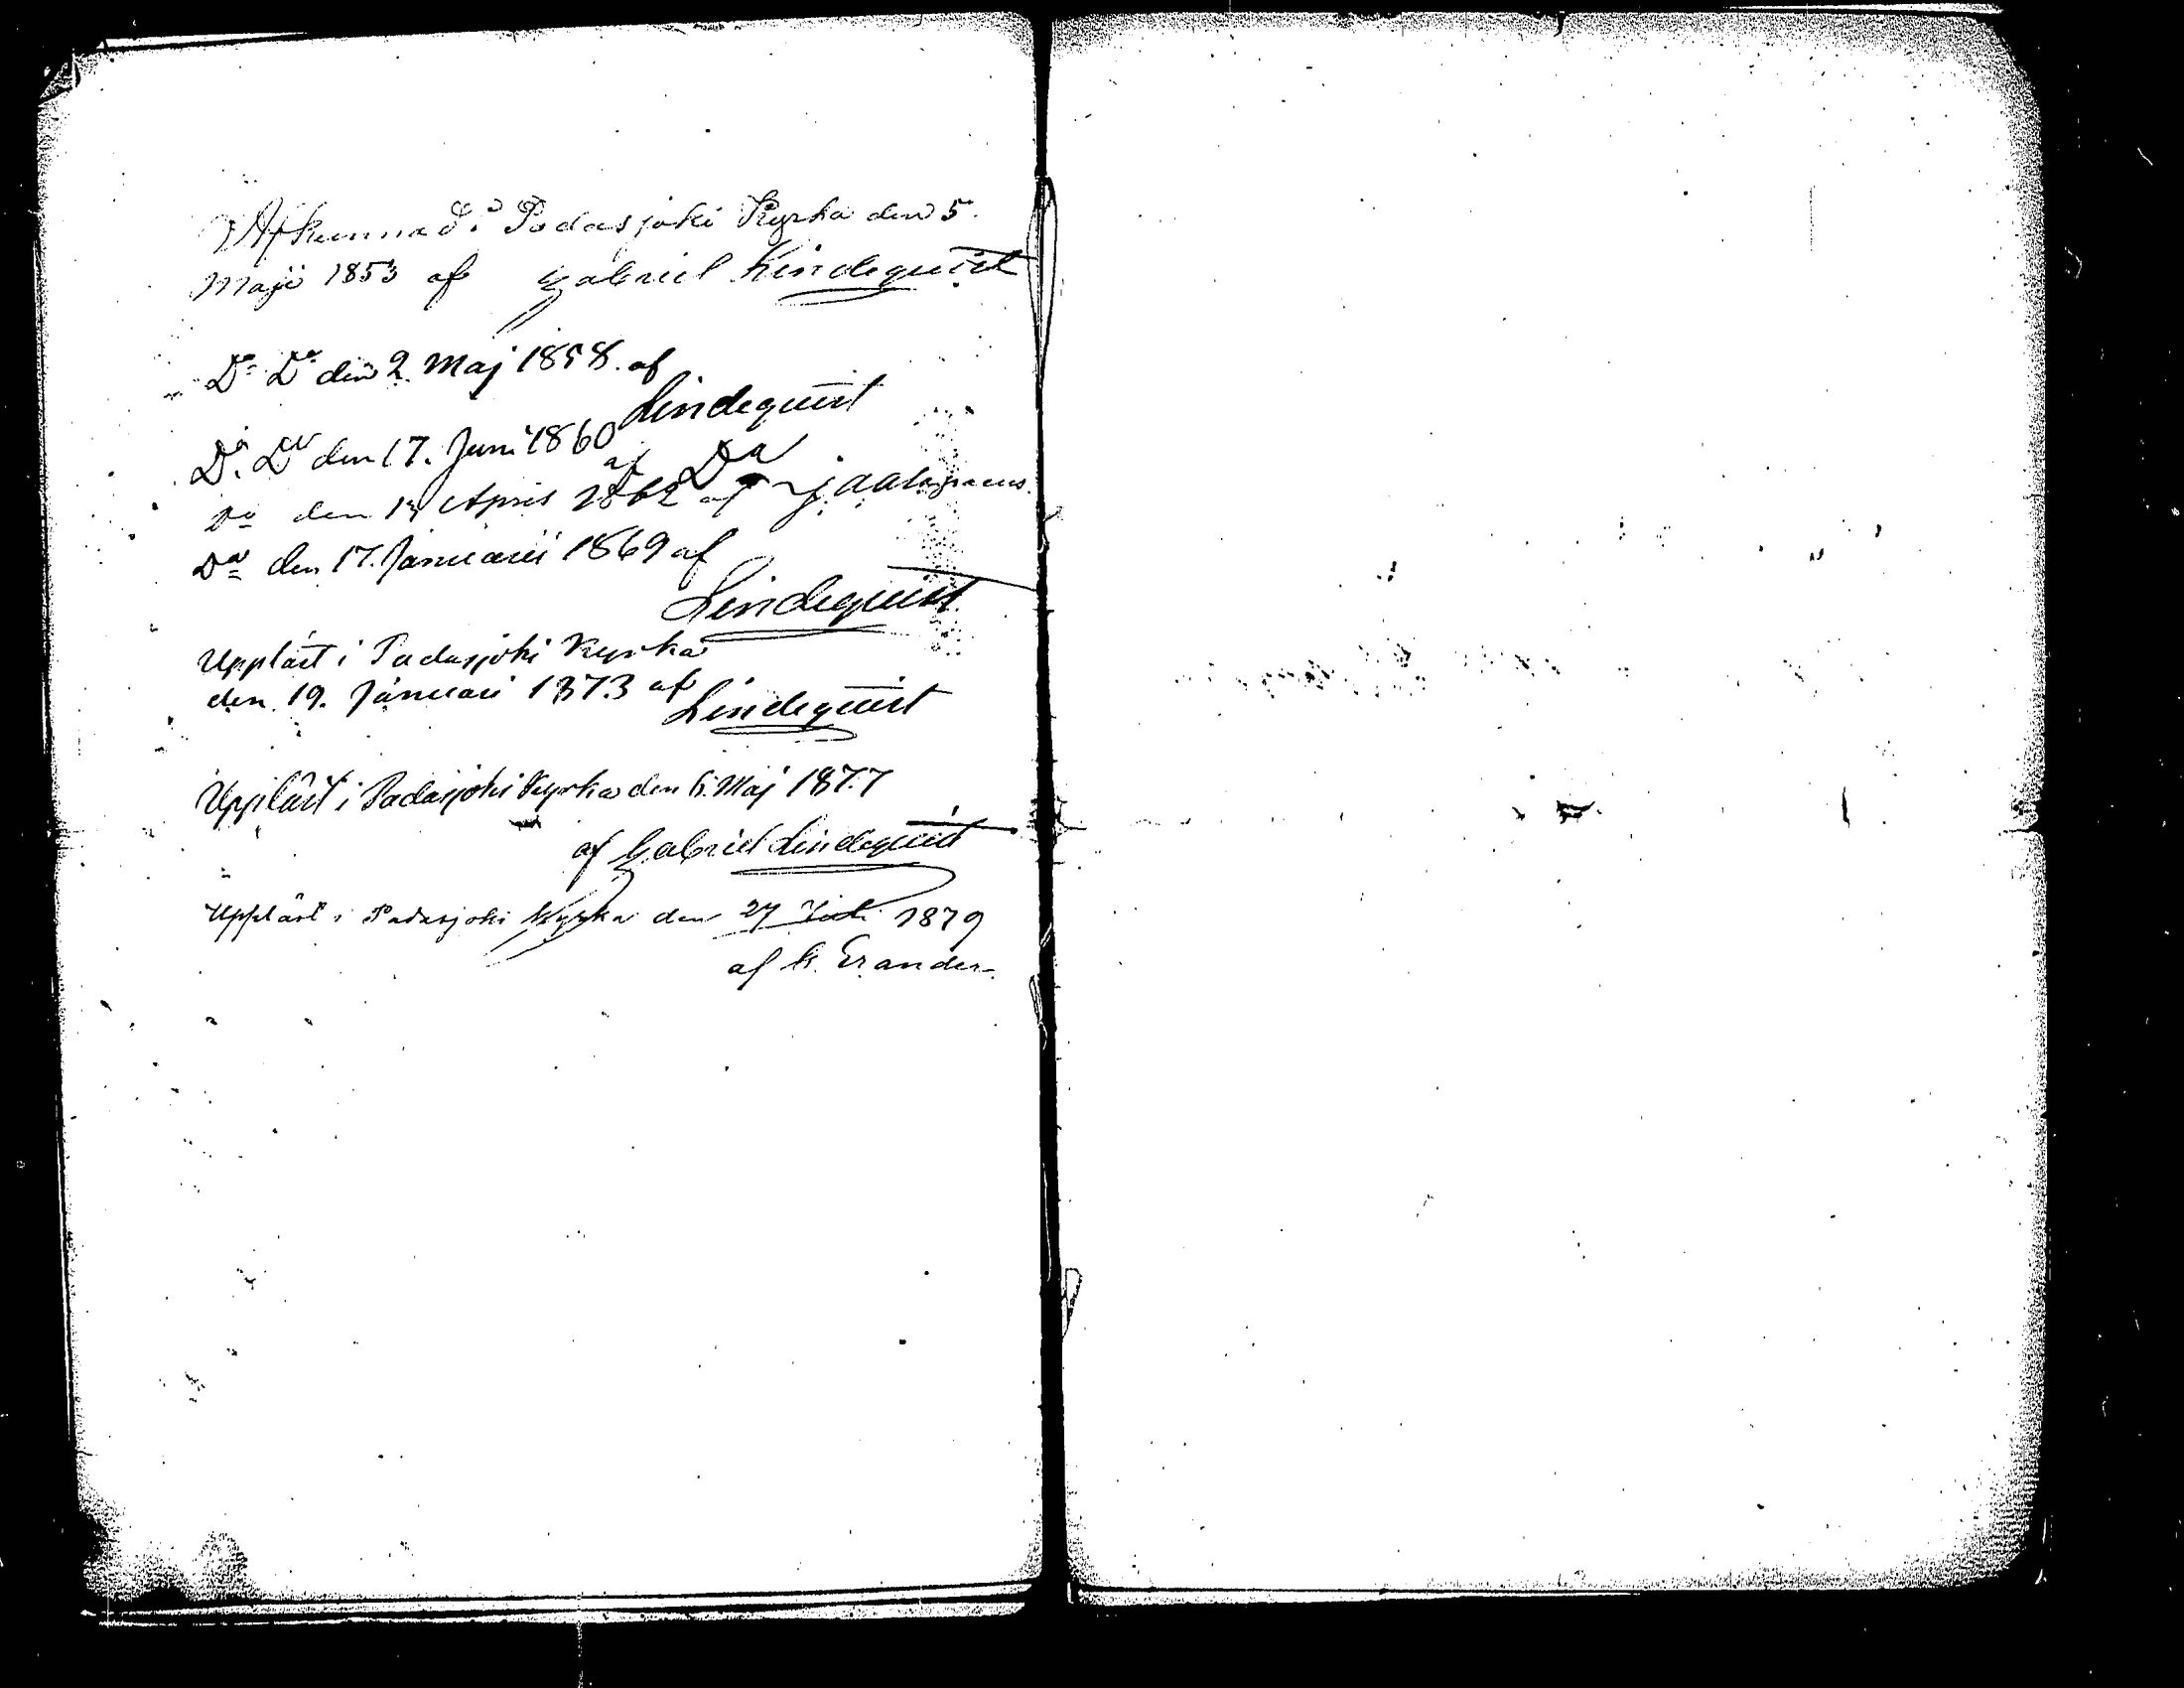 Afkunnad i Padasjoki Kyrka den 5.
Maji 1853 af Gabriel Lindequist
Do Do den 2 Maj 1858. af
Lindequist
Do. Do den 17. Juni 1860
af Do
Do den 13 April 1862 af
Do den 17. Januarii 1869 af
Lindequist
Uppläst i Padasjoki Kyrka
den 19. Januari 1873 af
Lindequist
Uppläst i Padasjoki Kyrka den 6. Maj 1877
af Gabriel Lindequist
Uppläst i Padasjoki Kyrka den 27 Juli 1879
af K. Erander